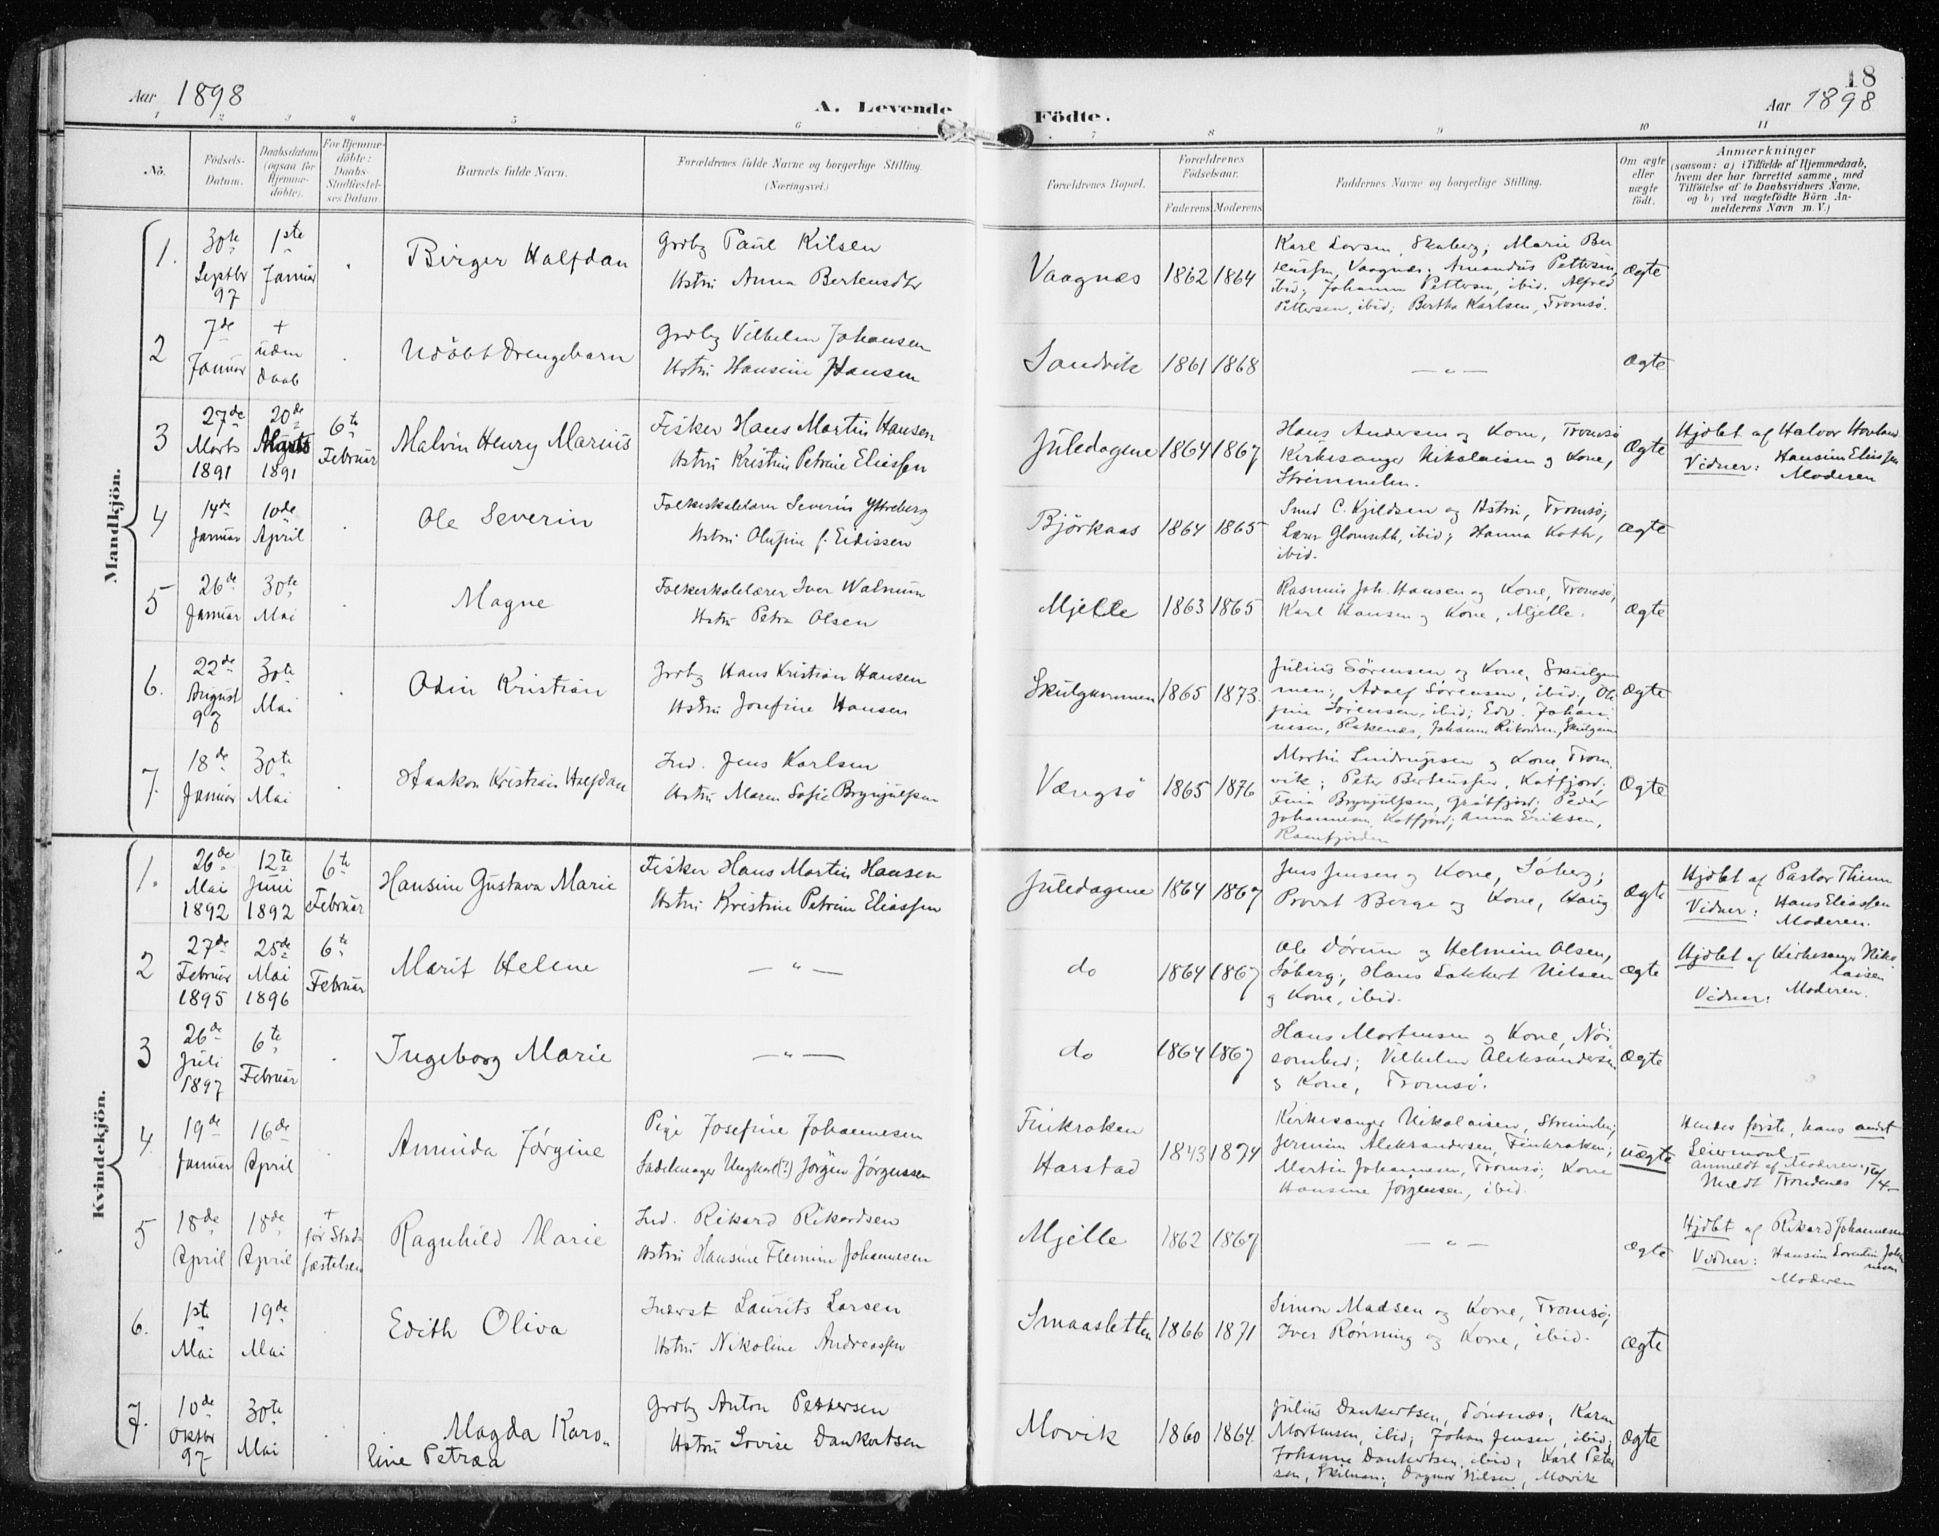 Aar 1898
A. Levende
Födte.
18
Aar 1898
1 2 3 4 5 6 7 8 9 10 11
No.
Födsels-
Datum.
Daabsdatum
(ogsaa for
Hjemme-
döbte).
For Hjemme-
döbte:
Daabs-
Stadfæstel-
ses Datum.
Barnets fulde Navn.
Forældrenes fulde Navne og borgerlige Stilling.
(Næringsvei.)
Forældrenes Bopæl.
Forældrenes
Födselsaar.
Faderens Moderens
Faddernes Navne og borgerlige Stilling.
Om ægte
eller
uægte
födt.
Anmærkninger
(saasom: a) i Tilfælde af Hjemmedaab,
hvem der har forrettet samme, med
Tilföielse af to Daabsvidners Navne,
og b) ved uægtefödte Börn An-
melderens Navn m. V.)
Mandkjön.
1. 30te Septbr 97
1ste Januar
Birger Halfdan
Grdbg Paul Kilsen
Hstru Anna Berteusdtr
Vaagnæs 1862 1864
Karl Larsen, Skaberg; Marie Ber
teussen, Vaagnæs; Amandus Pettersen,
ibid; Johanna Pettersen, ibid. Alfred
Pettersen, ibid; Bertha Karlsen, Tromsø.
Ægte
2 7de Januar
+ uden Daab
Udöbt Drengebarn
Grdbg Vilhelm Johansen
Hstru Hansine Hansen
Sandvik 1861 1868
— „ —
Ægte
3 27de Marts 1891
20de Marts 1891
6te Februar
Malvin Henry Marius
Fisker Hans Martin Hansen
Hstru Kristine Petrine Eliassen
Juledagene 1864 1867
Hans Andersen og Kone, Tromsø
Kirkesanger Nikolaisen og Kone,
Strimmelen.
Ægte
Hjdbt af Halvor Hovland
Vidner: Hansine Eliassen
Moderen
4 14de Januar
10de April
Ole Severin
Folkeskolelærer Severin Ytreberg
Hstru Olufine f. Eidissen
Björkaas 1864 1865
Smed C. Kjeldsen og Hstru, Tromsø;
Lars Glomseth, ibid; Hanna Koth,
ibid.
Ægte
5 26de Januar
30te Mai
Magne
Folkeskolelærer Iver Walnum
Hstru Petra Olsen
Mjelle 1863 1865
Rasmus Joh. Hansen og Kone, Tromsø,
Karl Hansen og Kone, Mjelle.
Ægte
6. 22de August 97
30te Mai
Odin Kristian
Grdbg Hans Kristian Hansen
Hstru Josefine Hansen
Skulgammen 1865 1873.
Julius Sørensen og Kone, Skulgam
men; Adolf Sørensen, ibid; Olu
fine Sørensen, ibid; Edv. Johan
nesen, Rakenæs, Johanna Rikardsen, Skulgam
Ægte
7. 18de Januar
30te Mai
Haakon Kristian Halfdan
Ind. Jens Karlsen
Hstru Maren Sofie Brynjulfsen
Vængsö 1865 1876
Martin Lindrupsen og Kone, Trom
vik; Peter Berteussen, Katfjord;
Fina Brynjulfsen, Grötfjord; Peder
Johannesen, Katfjord; Anna Eriksen,
Ramfjorden
Ægte
Kvindekjön.
1. 26de Mai 1892
12te Juni 1892
6te Februar
Hansine Gustava Marie
Fisker Hans Martin Hansen
Hstru Kristine Petrine Eliassen
Juledagene 1864 1867
Jens Jensen og Kone, Søberg;
Provst Berge og Kone, Haug
Ægte
Hjdbt af Pastor Thinn
Vidner: Hans Eliassen
Moderen.
2 27de Februar 1895
25de Mai 1896
6te Februar
Marit Helene
— „ —
do 1864 1867
Ole Dørum og Helmine Olsen,
Søberg; Hans Lakkert Nilsen
og Kone, ibid.
Ægte
Hjdbt af Kirkesanger Niko
laisen
Vidner: Moderen.
3 26de Juli 1897
6te Februar
Ingeborg Marie
— „ —
do 1864 1867
Hans Mortensen og Kone, Nöi
somhed; Vilhelm Aleksandersen
og Kone, Tromsø.
Ægte
4. 19de Januar
16de April
Aminda Jørgine
Pige Josefine Johannesen
Sadelmager Ungkarl (?) Jörgen Jörgenssen
Finkroken
Harstad
1843 1874
Kirkesanger Nikolaisen, Strimmlen;
Jermine Aleksandersen, Finkroken;
Martin Johannesen, Tromsø; Kone
Hansine Jørgensen, ibid.
uægte
Hendes første, hans andet
Leiermaal
Anmeldt af Moderen.
Meldt Trondenes 16/4
5 18de April
18de April
+ før Stadfæstelsen
Ragnhild Marie
Ind. Rikard Rikardsen
Hstru Hansine Flemine Johannesen
Mjelle 1862 1867
— „ —
Ægte
Hjdbt af Rikard Johannesen
Vidner: Hansine Lorentine Johan
nesen
Moderen
6. 1ste Mai
19de Mai
Edith Oliva
Inderst Laurits Larsen
Hstru Nikoline Andreassen
Smaasletten 1866 1871
Simon Madsen og Kone, Tromsø;
Iver Rønning og Kone, ibid.
Ægte
7. 10de Oktbr 97
30te Mai
Magda Karo-
line Petræa
Grdbg Anton Pettersen
Hstru Lovise Dankertsen
Movik 1860 1864
Julius Dankertsen, Tönsnæs; Karen
Mortensen, ibid; Johan Jensen, ibid;
Johanne Dankertsen, ibid; Karl Peter
sen, Skilman; Dagmar Nilsen, Movik
Ægte